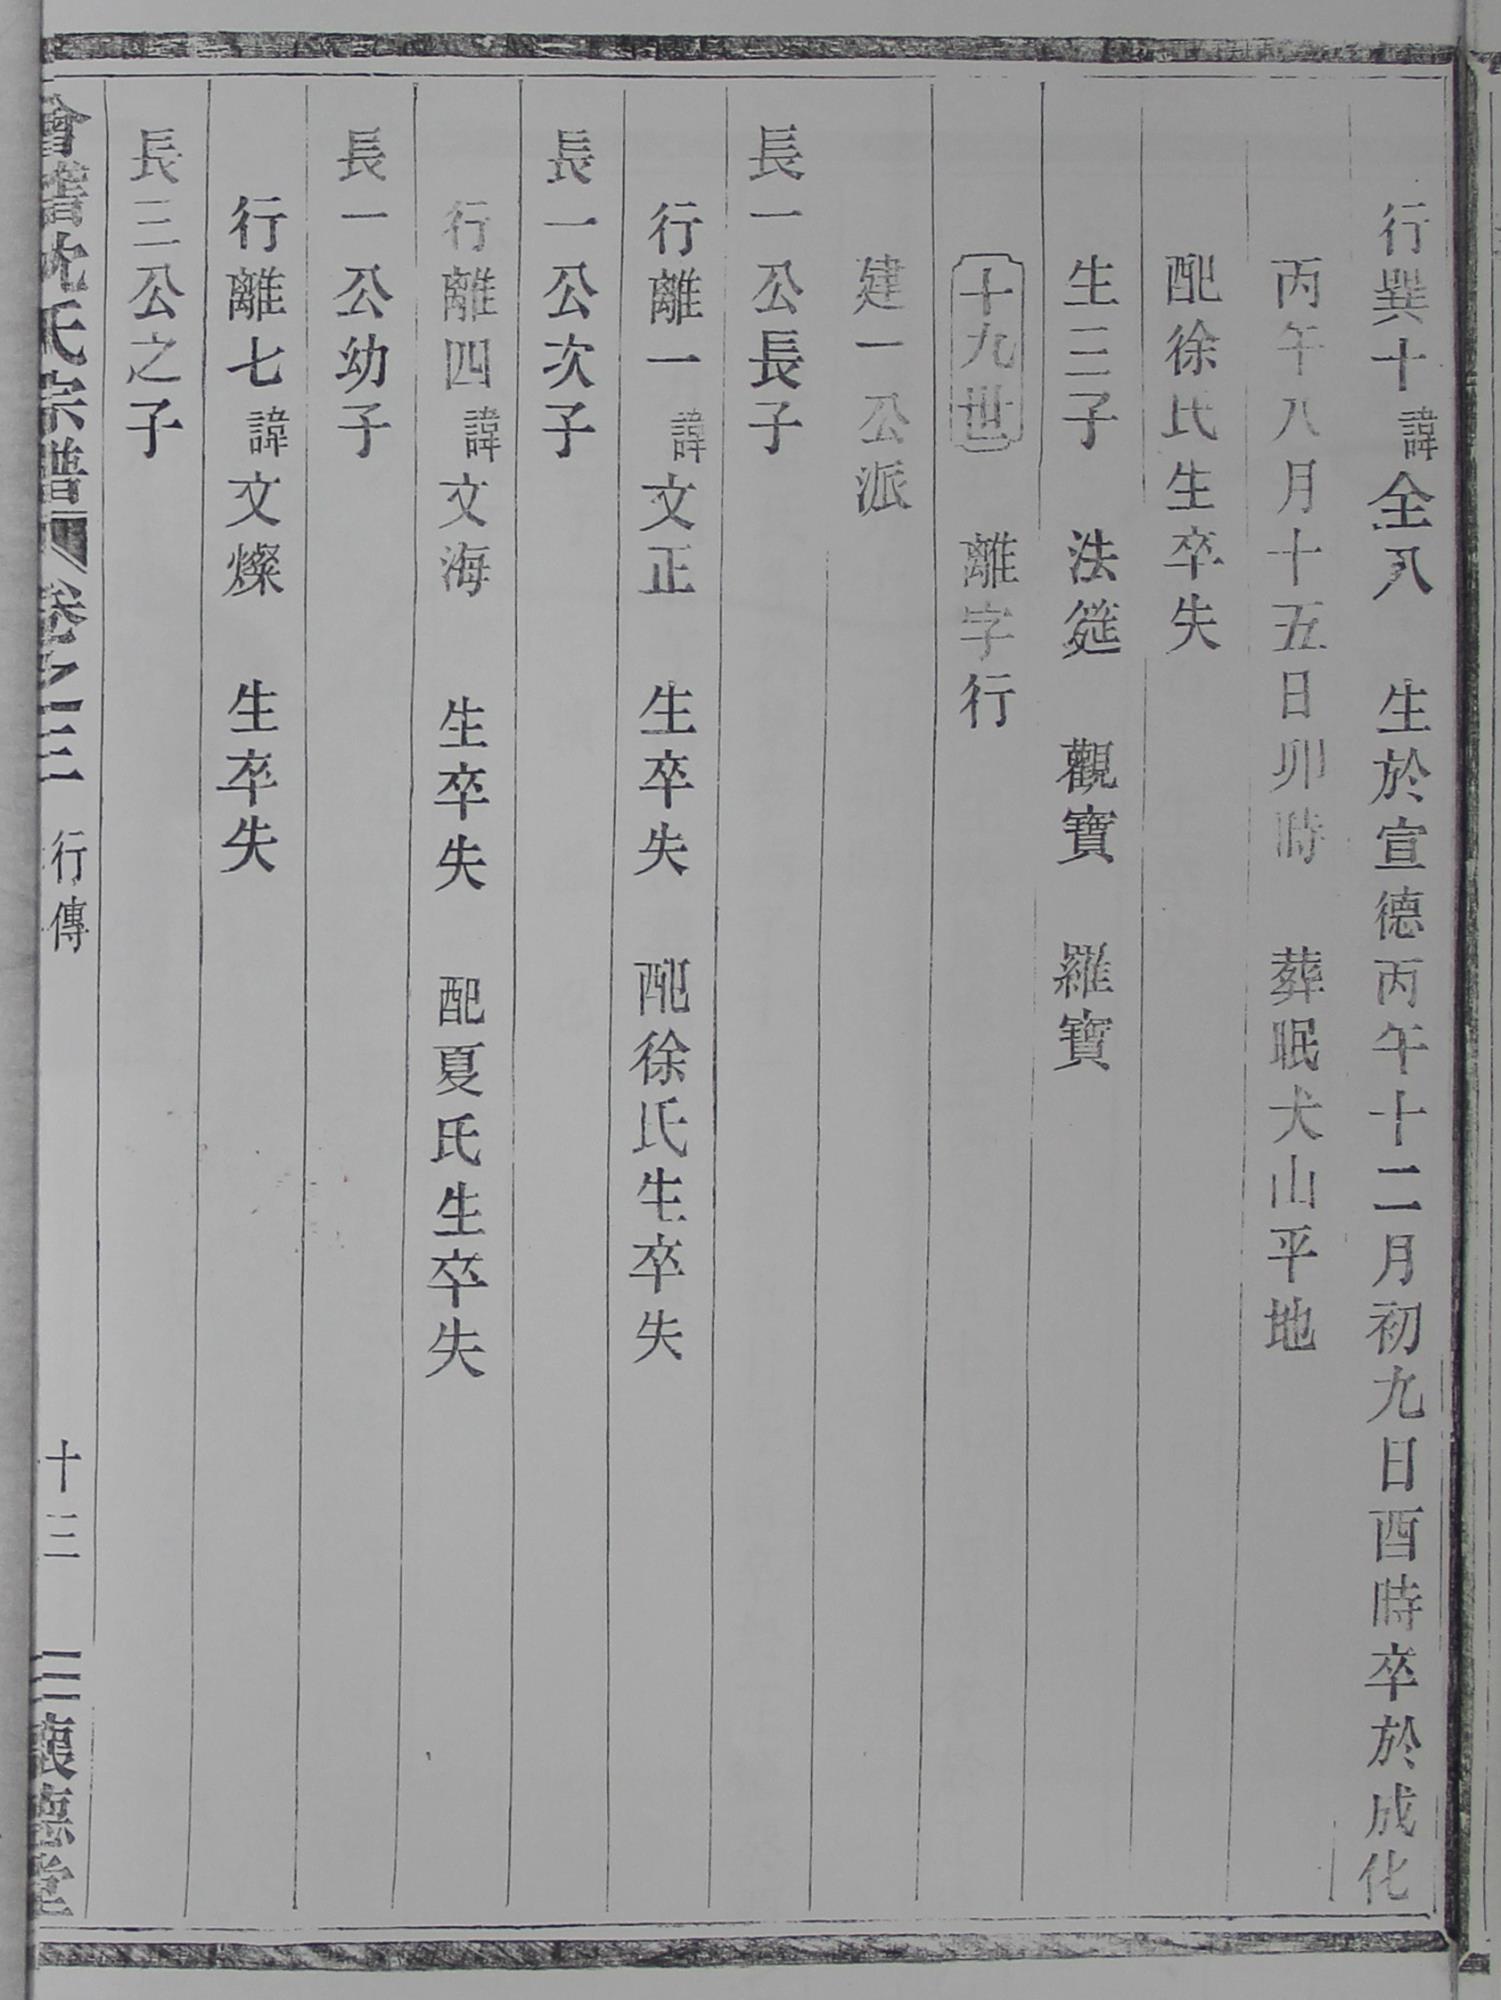 行巽十諱全八　生於宣德丙午十二月初九日酉時卒於成化
丙午八月十五日卯時　葬眠犬山平地
配徐氏生卒失
生三子　法筵　觀寶　羅寶
十九世　離字行
建一公派
長一公長子
行離一諱文正　生卒失　配徐氏生卒失
長一公次子
行離四諱文海　生卒失　配夏氏生卒失
長一公幼子
行離七諱文燦　生卒失
長三公之子
會稽沈氏宗譜　卷之三　行傳　十三　三褱德堂